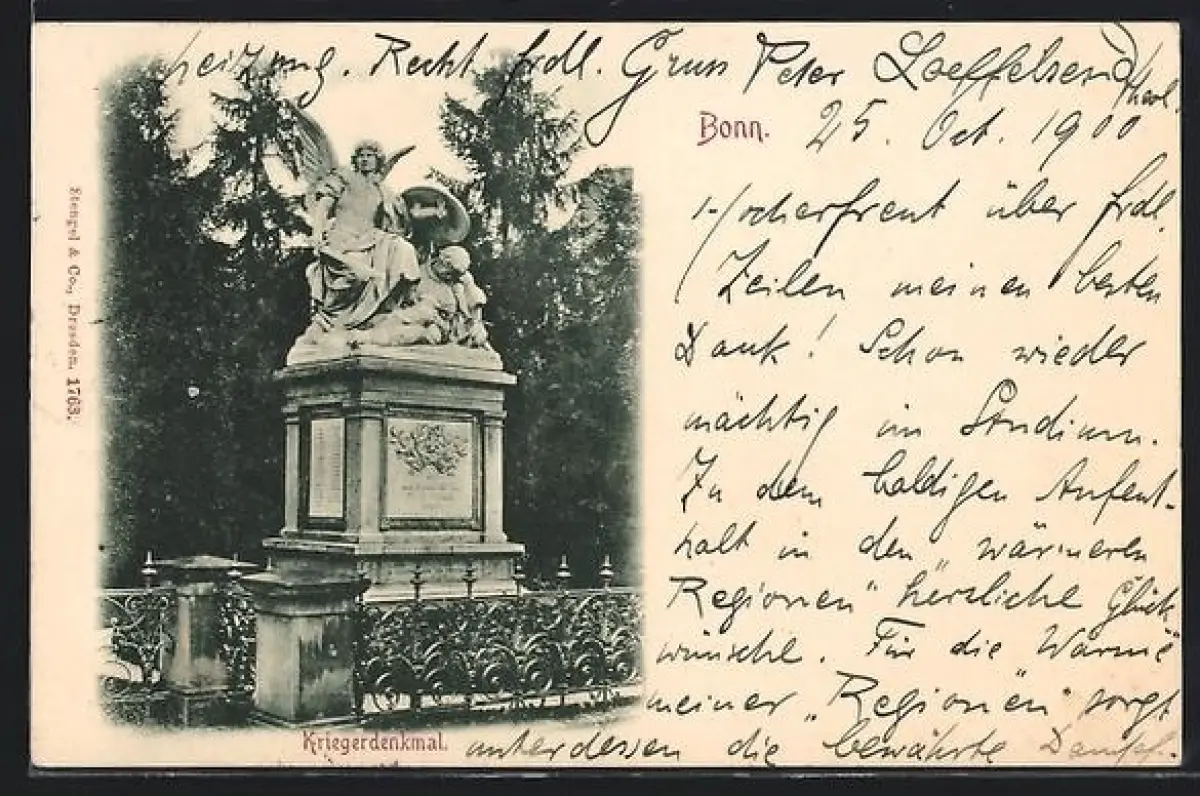 heizung. Recht frdl. Gruss Peter Loeffelsend
Bonn.
25. Oct. 1900
Hocherfreut über frdl.
Zeilen meinen besten
Dank! Schon wieder
mächtig im Studium.
Zu dem baldigen Aufent-
halt in den „wärmeren
Regionen" herzliche Glück
wünsche. Für die "Wärme
meiner „Regionen" sorgt
unterdessen die bewährte Dampf-
Kriegerdenkmal.
Stengel & Co., Dresden. 1763.